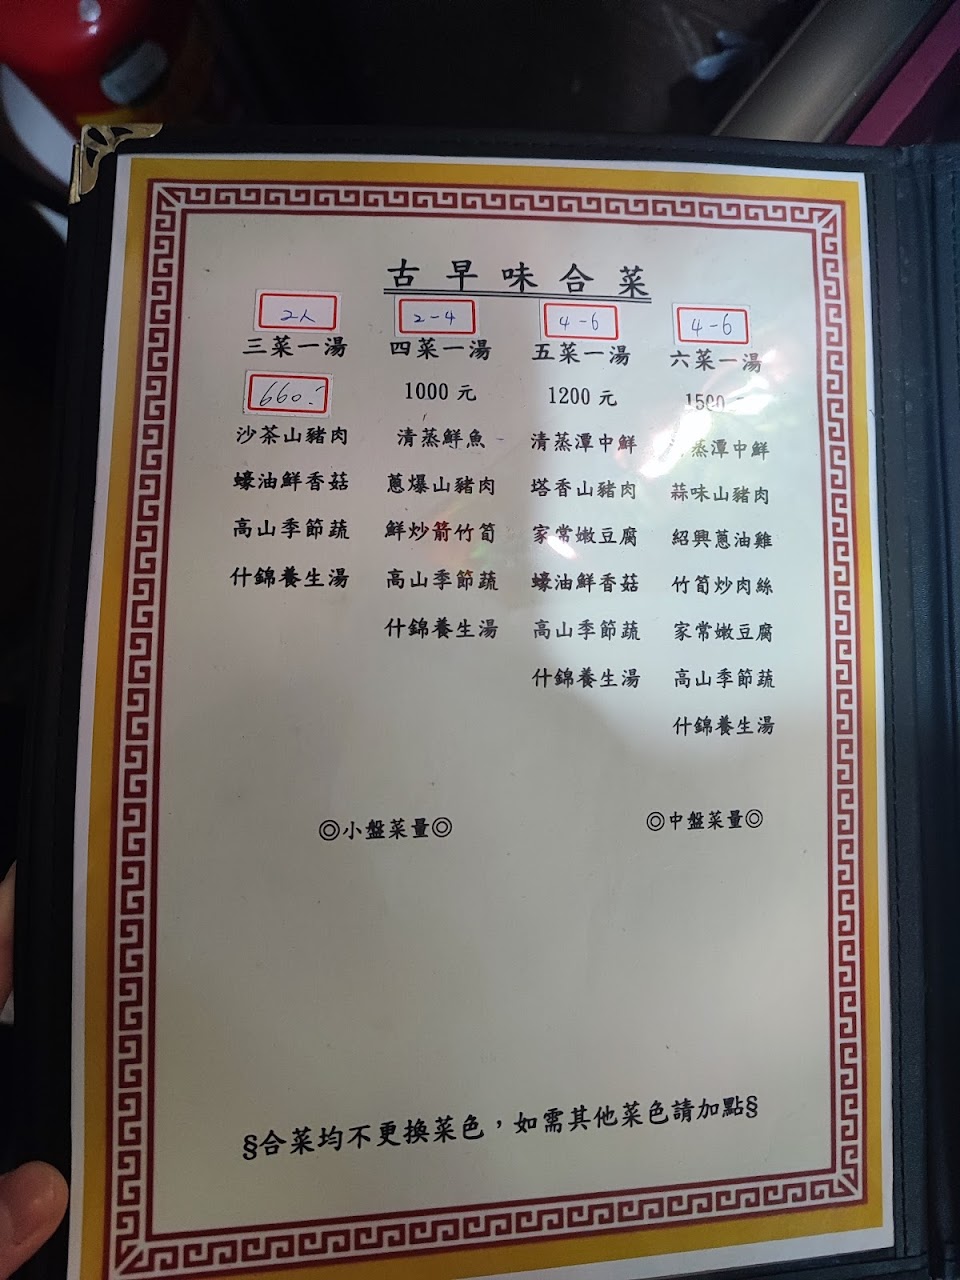 古早味合菜
2人
三菜一湯
660.-
沙茶山豬肉
蠔油鮮香菇
高山季節蔬
什錦養生湯
2-4
四菜一湯
1000 元
清蒸鮮魚
蔥爆山豬肉
鮮炒箭竹筍
高山季節蔬
什錦養生湯
4-6
五菜一湯
1200 元
清蒸潭中鮮
塔香山豬肉
家常嫩豆腐
蠔油鮮香菇
高山季節蔬
什錦養生湯
4-6
六菜一湯
1500
蒸潭中鮮
蒜味山豬肉
紹興蔥油雞
竹筍炒肉絲
家常嫩豆腐
高山季節蔬
什錦養生湯
◎小盤菜量◎
◎中盤菜量◎
§合菜均不更換菜色，如需其他菜色請加點§